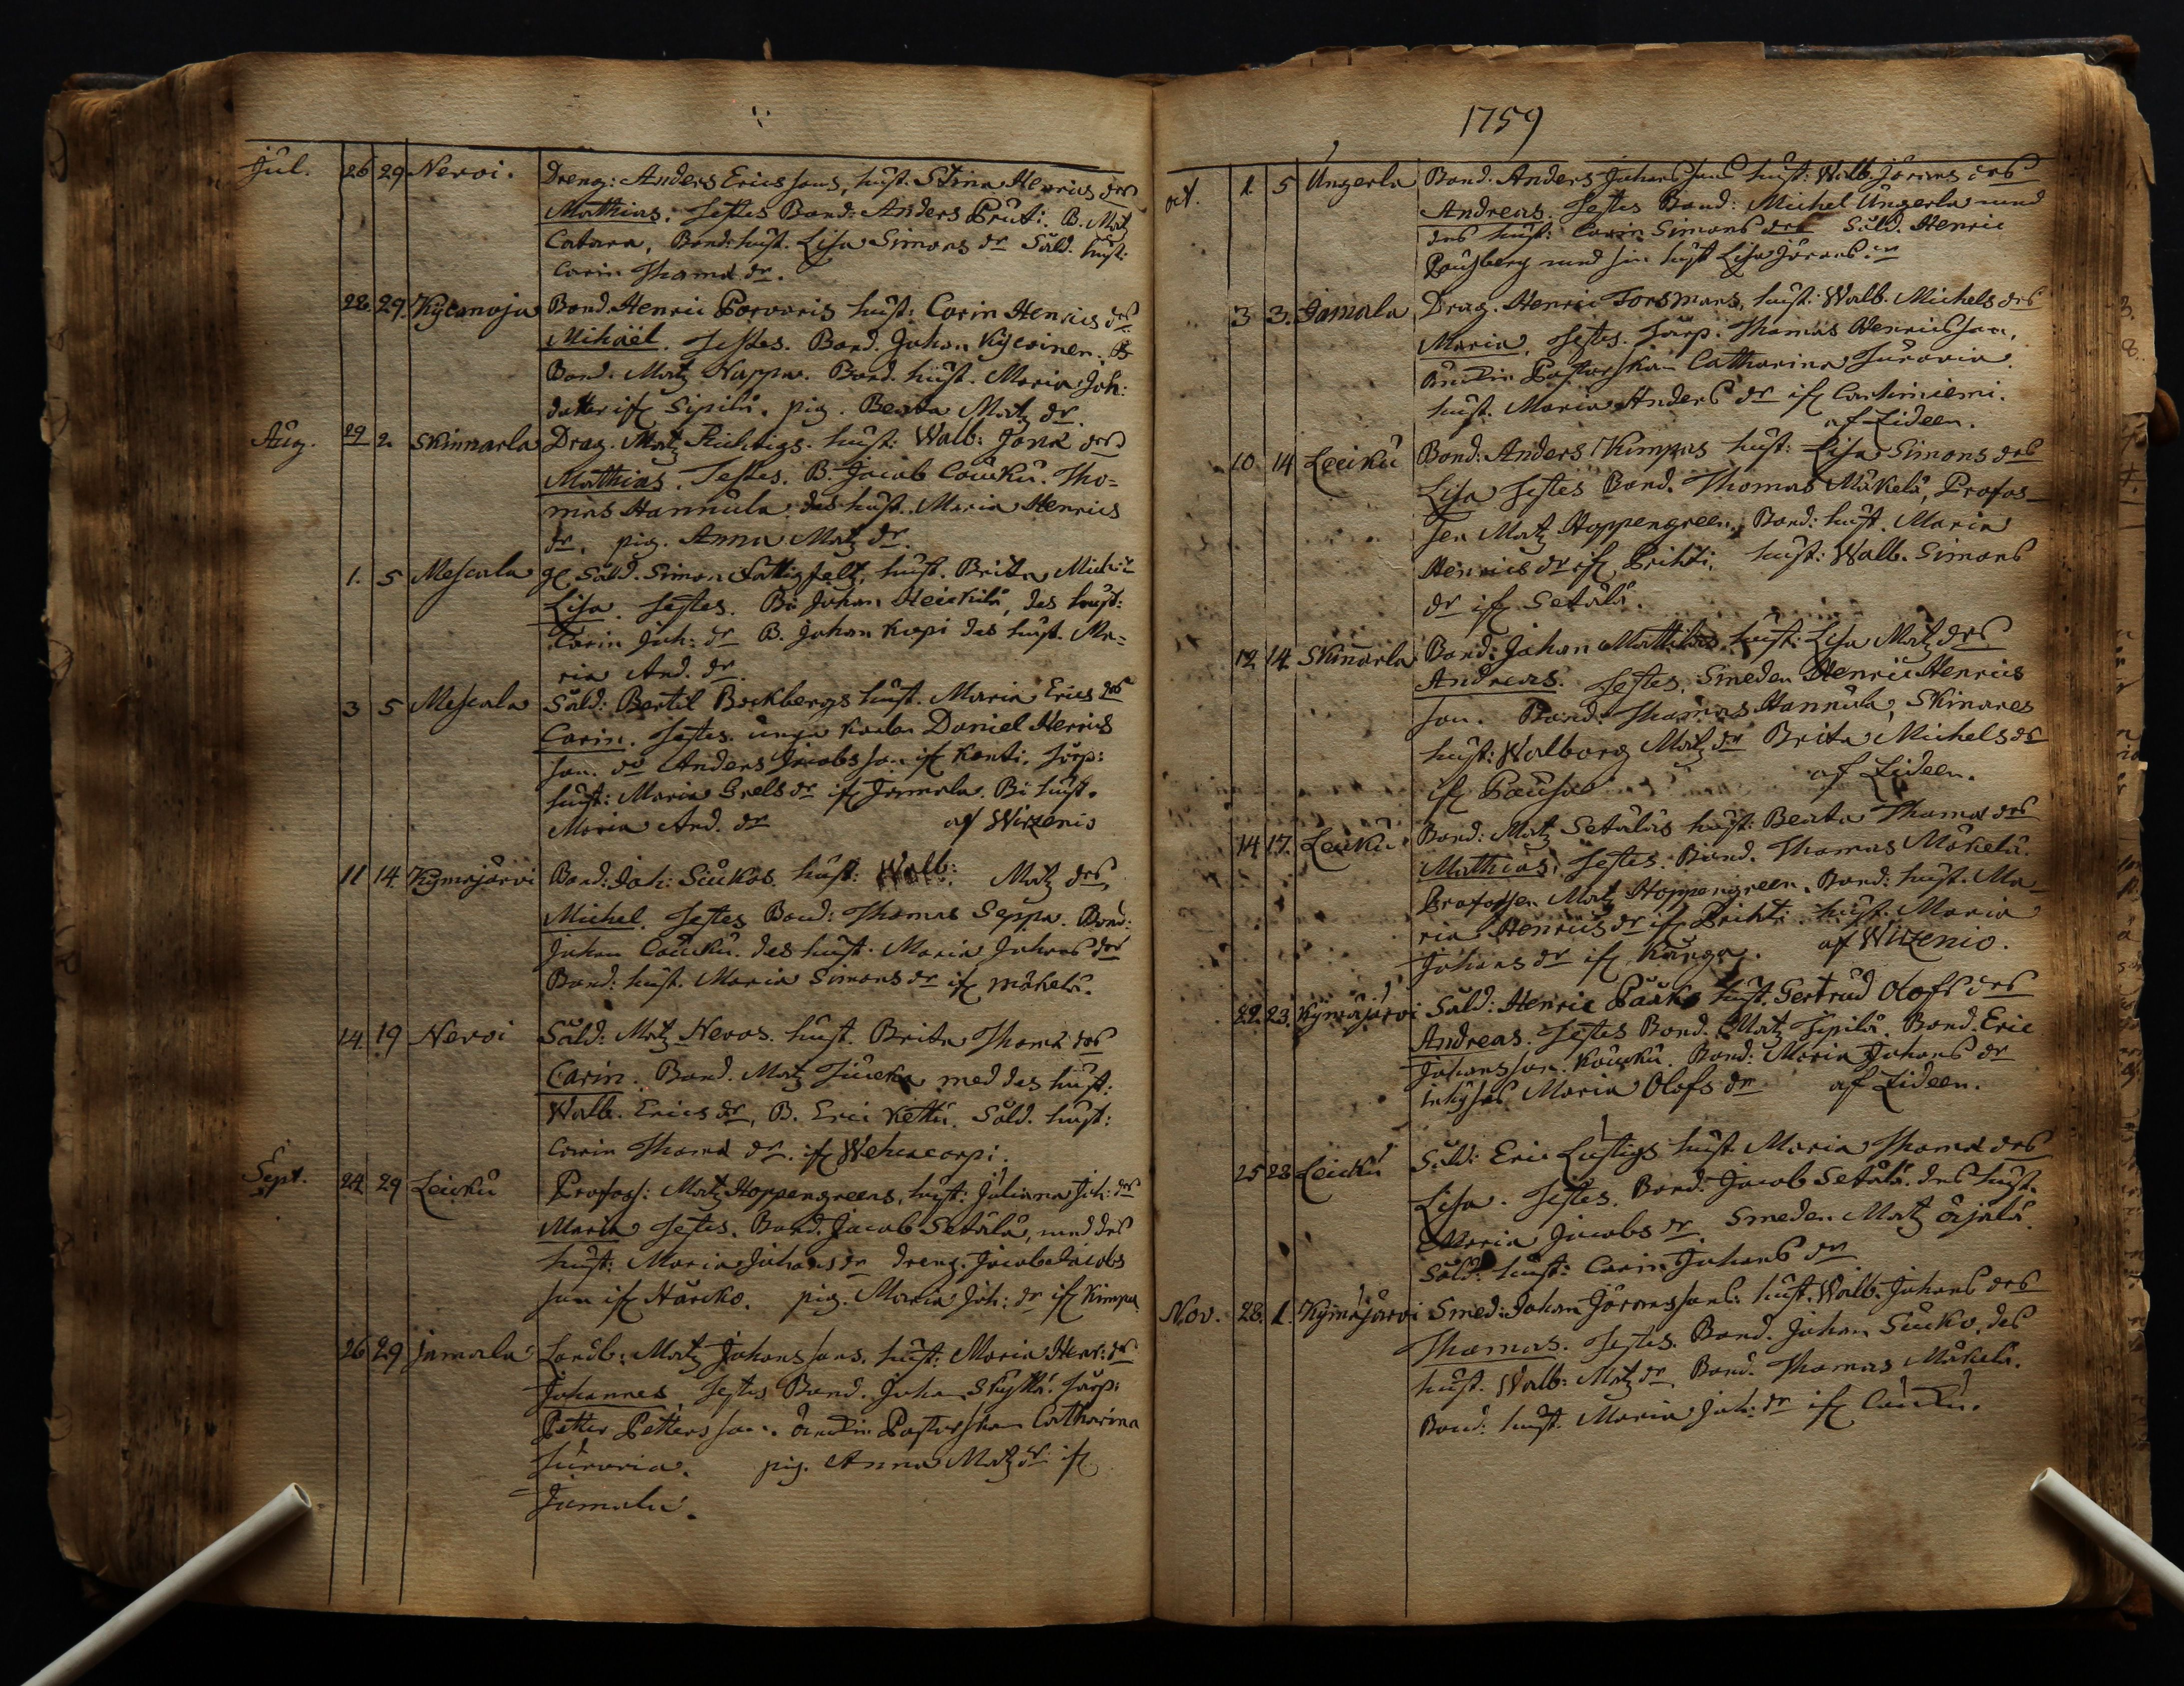 Jul. 26 29 Nervi. Dreng: Anders Ericssons, hust. Stina Henrics drs
Mathias. Testes Bond: Anders Prut: B. Matz
Catara, Bond: hust. Lisa Simons dr Såld. hust:
Carin Thomæ dr.
28. 29. Kycanoja Bond. Henric Porvaris hust: Carin Henrics drs
Mihaël. Testes. Bond. Johan Kycoinen. B
Bond. Matz Nappa. Bond. hust. Maria Joh:
dotter if Sipilä. pig. Beata Matz dr.
Aug. 29 2. Skinnarla Drag. Matz Richtigs. hust: Walb: Jonæ drs
Mathias. Testes. B. Jacob Coucku. Tho=
mas Hannula des hust. Maria Henrics
dr, pig. Anna Matz dr.
1. 5 Mescala Såld. Simon Fattigfelt, hust. Brita Mich:
Lisa. Testes. Bo: Johan Heickilä, des hust:
Carin Joh: dr B. Johan Kepi des hust. Ma=
ria And. dr.
3 5 Mescala Såld: Bertil Bockbergs hust. Maria Erics drs
Carin. Testes. unga Karlen Daniel Henrics
son. do Anders Jacobsson if Kenti. Torp:
hust: Maria Grels dr if Jamala. Bo: hust.
Maria And. dr af Wizenio
11 14. Kymäjärvi Bond: Joh: Siukos hust: Walb: Matz drs,
Michel. Testes Bond: Thomas Seppä. Bond:
Johan Coucku. des hust. Maria Johans dr
Bond: hust. Maria Simons dr if Mäkelä.
14. 19 Nervoi Såld: Matz Nevos. hust. Brita Thomæ drs
Carin. Bond. Matz Siucku med des hust:
Walb. Erics dr, B. Eric Kettu. Såld. hust:
Carin Thomæ dr. if Wehcacorpi.
Sept. 24 29 Leicku Profoss: Matz Hoppengreens, hust: Juliana Joh: drs
Maria Testes. Bond. Jacob Setälä, med des
hust: Maria Johans dr dreng. Jacob Jacobs
son if Harcko. pig. Maria Joh: dr if Kimpa.
26 29 Jamala Landb: Matz Johanssons. hust: Maria Henr: dr
Johannes Testes Bond. Joha Skyttä. Torp:
Petter Petterssan. Pastorskan Catharina
Juvaria. pig. Anna Matz dr: if
Jamala.
1759
oct. 1. 5 Ungerla Bond: Anders Johans Sons hust: Walb. Jörans drs
Andreas. Testes Bond: Michel Ungerla med
des hust: Carin Simons dr Såld. Henric
Pausberg med sin hust Lisa Jörans dr
3 3. Jamala Drag. Henric Forsmans, hust: Walb. Michels drs
Maria, Testes. Torp. Thomas Henricsson,
Pastorskan Catharina Juvaria
hust. Maria Anders dr if Cartiniemi.
af Lideen.
10 14 Leicku Bond: Anders Kimpas hust: Lisa Simons drs
Lisa Testes Bond. Thomas Mäkelä, Profos-
sen Matz Hoppengreen, Bond: hust. Maria
Henrics dr if Prihti, hust: Walb. Simons
dr if Setälä.
12. 14. Skinarla Bond: Johan Mattilas hust: Lisa Matz drs
Andreas. Testes. Smeden Henric Henrics
son. Bond: Thomas Hannula, Skinares
hust: Walborg Matz dr Brita Michels dr
if Pausa af Lideen.
14. 17. Leicku Bond: Matz Setäläs hust: Beata Thomæ drs
Mathias. Testes. Bond. Thomas Mäkelä.
Profossen Matz Hoppengreen. Bond: hust. Ma-
ria Henrics dr if Prihti. hust. Maria
Johans dr if Kanga. af Wizenio.
22. 23. Kymäjärvi Såld: Henric Pärko hust. Gertrud Olofs drs
Andreas. Testes Bond. Matz Sipilä. Bond. Eric
Johansson. Koucku. Bond: Maria Johans dr
Inhyses Maria Olofs dr af Lideen.
25 28 Leicku Såld: Eric Lustigs hust. Maria Thomæ drs
Lisa. Testes. Bond: Jacob Setälä. des hust.
Maria Jacobs dr, Smeden Matz Ojala.
Såld: hust: Carin Johans dr
Nov. 28. 1. Kymäjärvi Smed: Johan Jöranssons: hust. Walb. Johans drs
Thomas. Testes. Bond. Johan Siuko. des
hust. Walb: Matz dr, Bond. Thomas Mäkelä.
Bond: hust. Maria Joh: dr if Coucku.